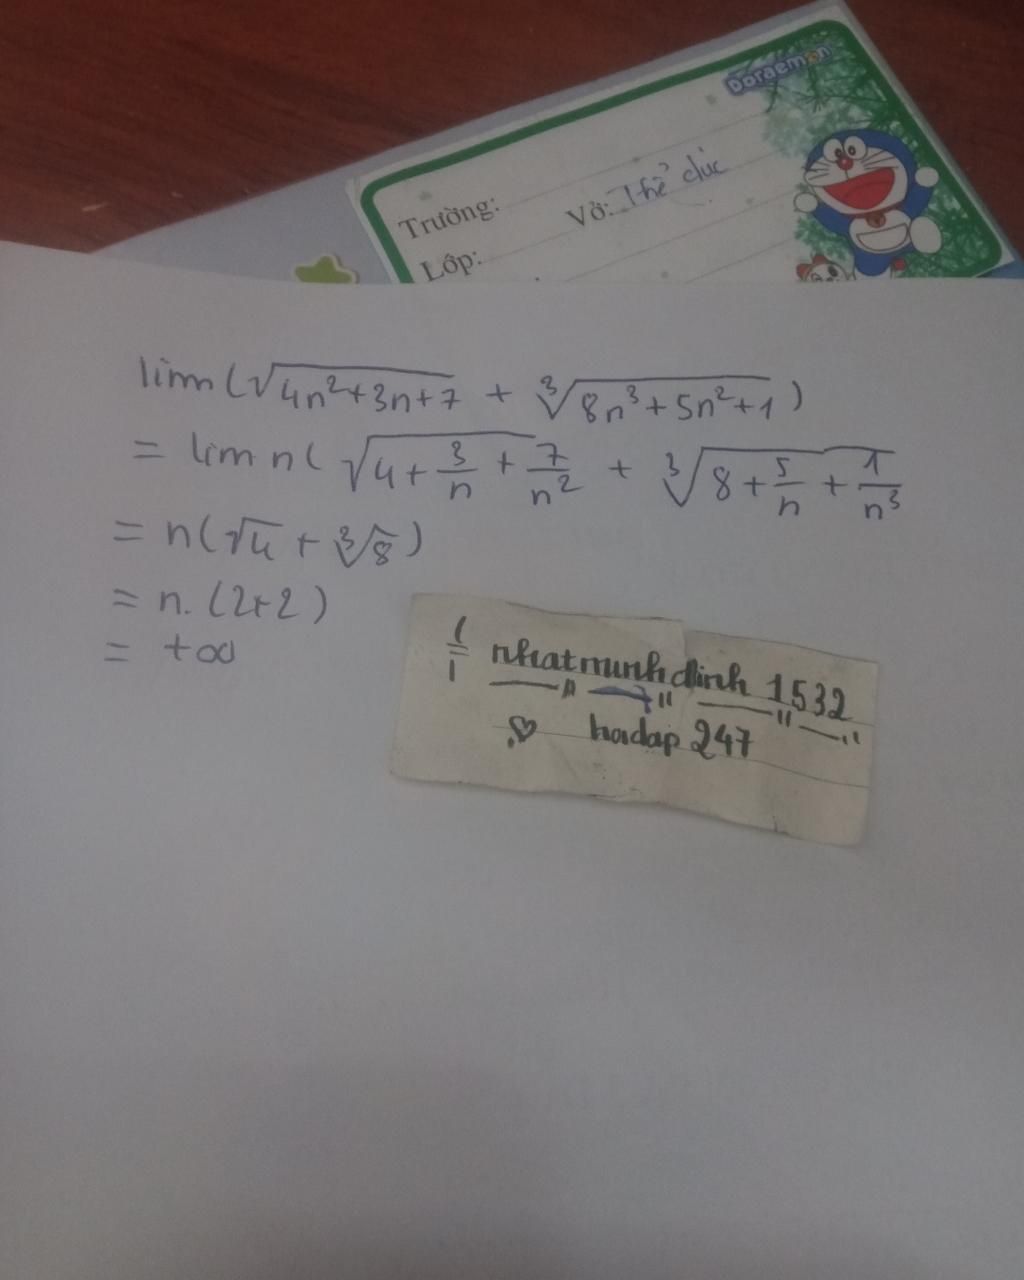 Doraemon
Trường:
Vở: Thể dục
Lớp:
lim(√(4n²+3n+7) + ∛(8n³+5n²+1))
= lim n(√(4+3/n+7/n²) + ∛(8+5/n+1/n³)
= n(√4 + ∛8)
= n.(2+2)
= +∞
nhatminhdinh 1532
hoidap 247